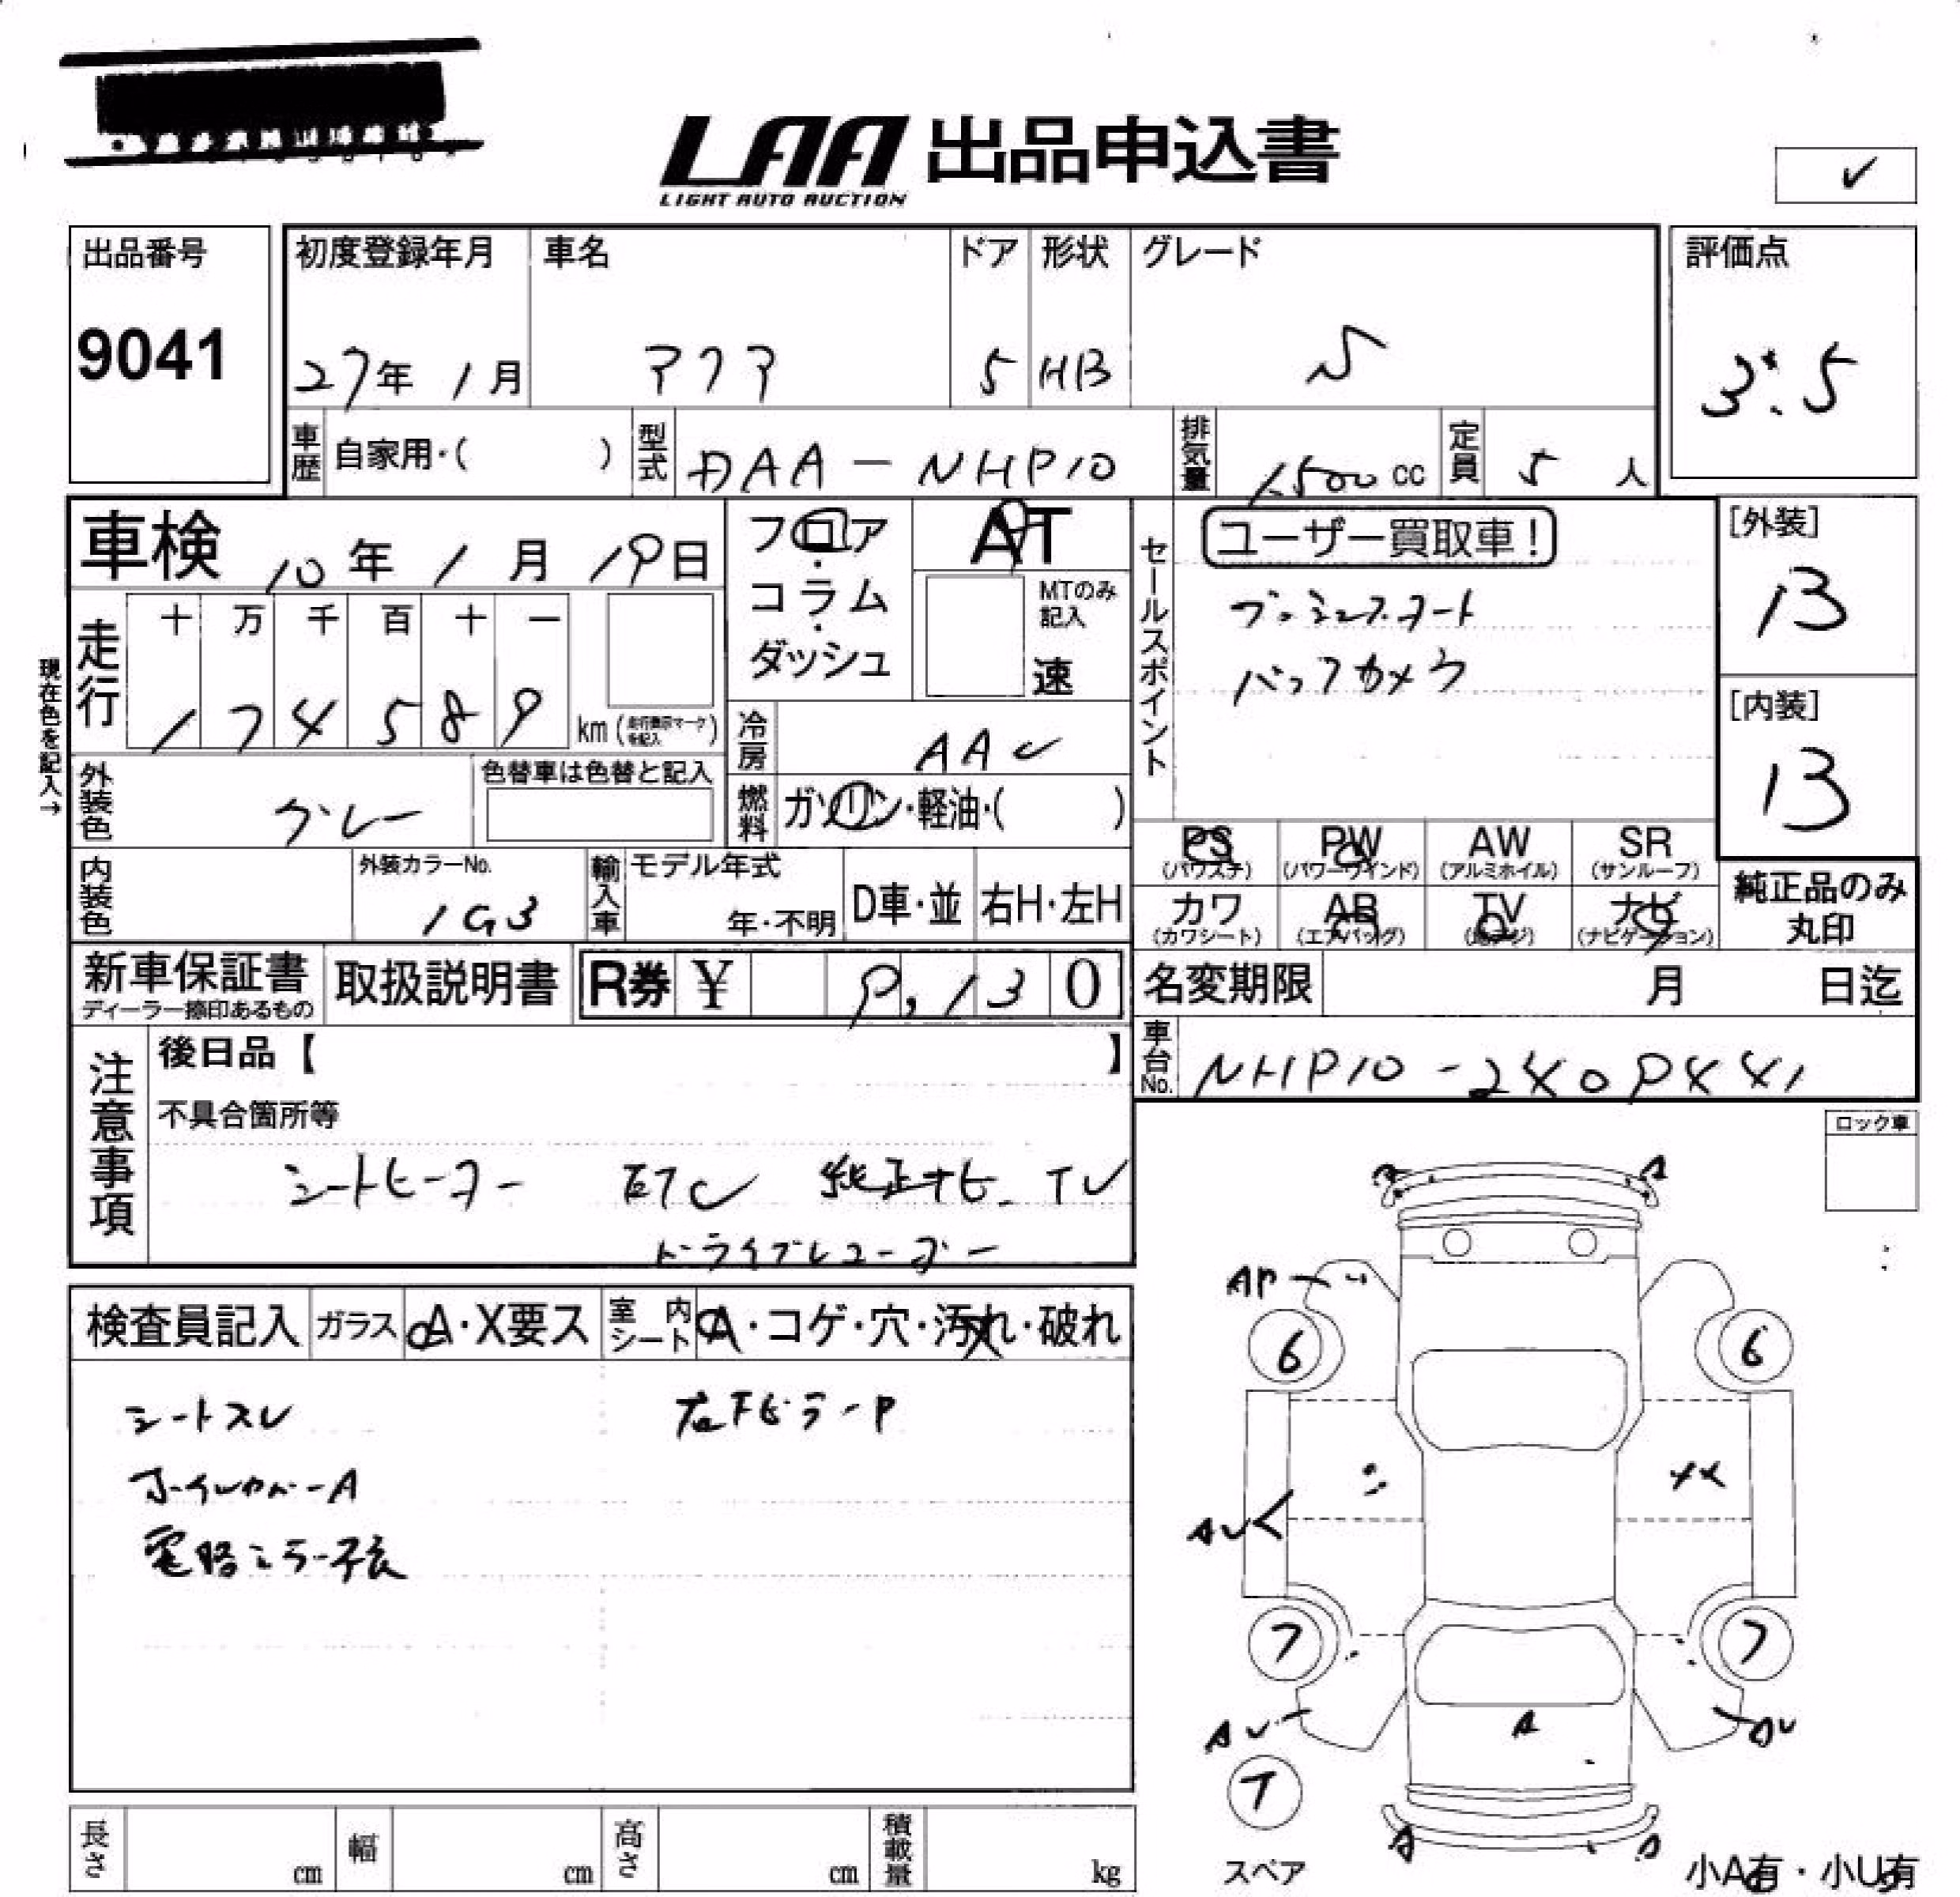 LAA 出品申込書
LIGHT AUTO AUCTION
✓
出品番号
9041
初度登録年月
27年 1月
車名
アクア
ドア
5
形状
HB
グレード
S
評価点
3.5
車歴 自家用・( )
型式 DAA-NHP10
排気量 1500 cc
定員 5 人
車検 10年 1月 19日
フロア・コラム・ダッシュ
AT
MTのみ記入
速
セールスポイント
ユーザー買取車!
プッシュスタート
バックカメラ
[外装]
B
[内装]
B
現在色を記入→
走行
十 万 千 百 十 一
1 7 4 5 8 9
km (走行表示マークを記入)
冷房 AAC
外装色 グレー
色替車は色替と記入
燃料 ガソリン・軽油・( )
PS (パワステ)
PW (パワーウインド)
AW (アルミホイル)
SR (サンルーフ)
カワ (カワシート)
AB (エアバッグ)
TV (地デジ)
ナビ (ナビゲーション)
純正品のみ丸印
内装色
外装カラーNo.
1G3
輸入車
モデル年式
年・不明
D車・並
右H・左H
新車保証書
ディーラー捺印あるもの
取扱説明書
R券 ¥ 9,130
名変期限 月 日迄
車台No. NHP10-2409441
注意事項
後日品【 】
不具合箇所等
シートヒーター ETC 純正ナビ TV
ドライブレコーダー
ロック車
検査員記入
ガラス A・X要ス
室内シート A・コゲ・穴・汚れ・破れ
シートスレ 左下ピラーP
ホイルカバーA
電格ミラー
A A
AP
6 6
××
AU
7 7
AU AU
A
T
スペア
A
小A有・小U有
長さ cm
幅 cm
高さ cm
積載量 kg